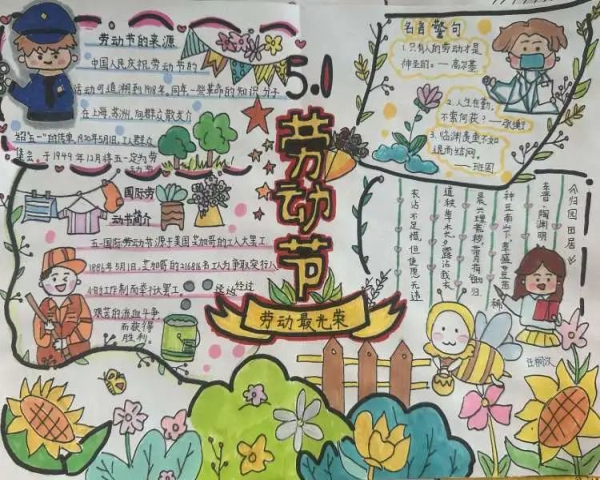 劳动节的来源
中国人民庆祝劳动节的
活动可追溯到1918年,同年一些革命的知识分子
在上海、苏州、向群众散发介
绍"五一"的传单,1920年5月1日,工人群众
集会,于1949年12月将五一定为劳
国际劳
动节简介
五一国际劳动节源于美国芝加哥的工人大罢工,
1886年5月1日,芝加哥的216000名工人为争取实行八
小时工作制而举行大罢工
经过
艰苦的流血斗争
而获得
胜利。
5.1
劳动节
劳动最光荣
名言警句
1.只有人的劳动才是
神圣的。——高尔基
2.人生在勤,
不索何获?——张衡
3.临渊羡鱼不如
退而结网。
——班固
《归园田居》
东晋·陶渊明
种豆南山下,草盛豆苗
稀
晨兴理荒秽,带月荷锄归
道狭草木长,夕露沾我衣
衣沾不足惜,但使愿无违